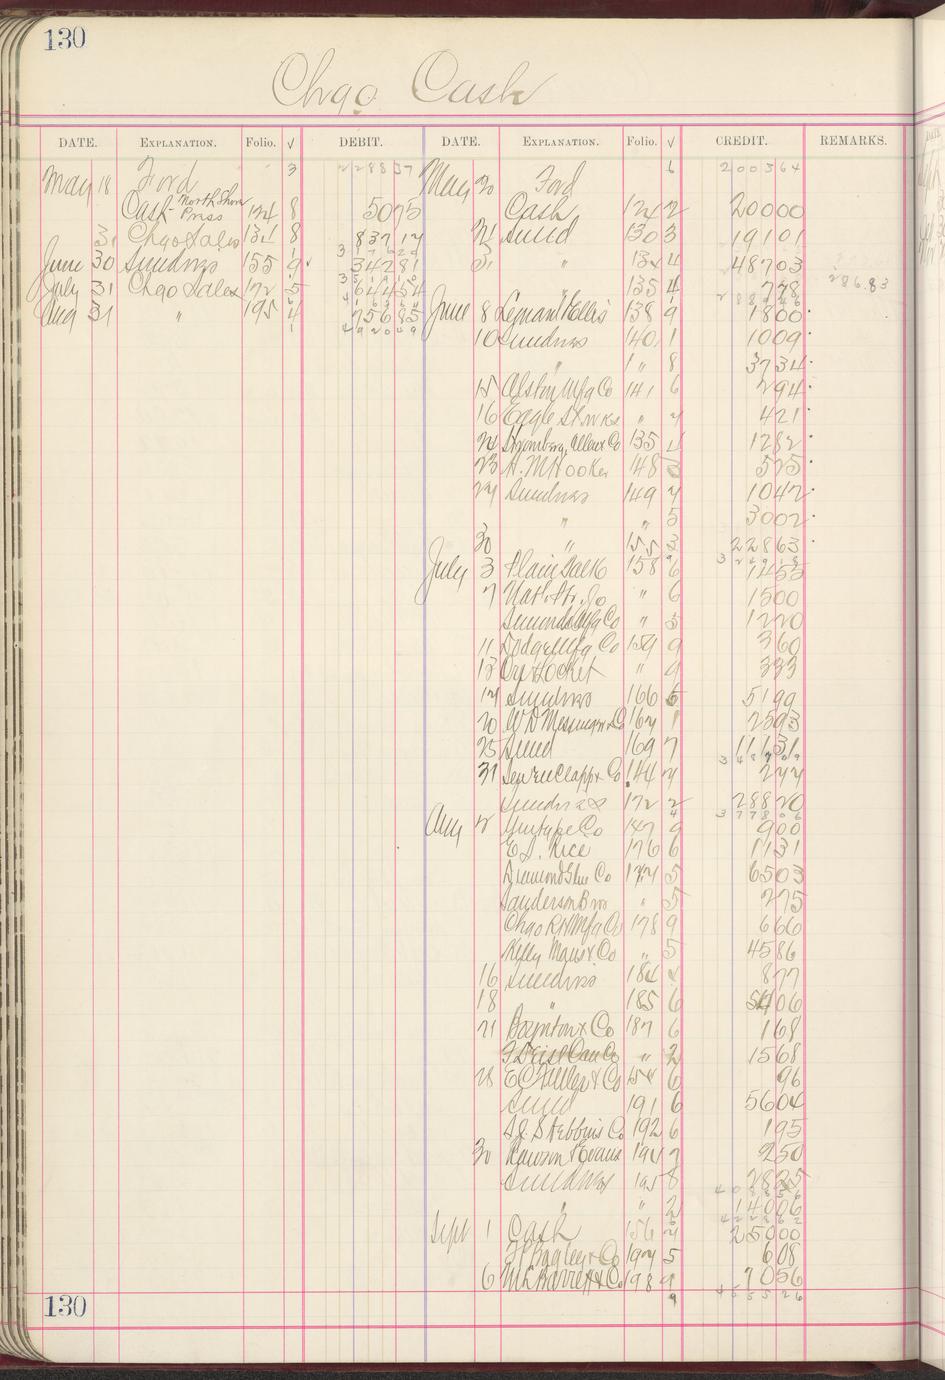 130
Chgo Cash
DATE. EXPLANATION. Folio. √ DEBIT. DATE. EXPLANATION. Folio. √ CREDIT. REMARKS.
May 18 Ford 3 2288 37 May 20 Ford 6 2003 64
Cash North Shore Press 124 8 50 75 Cash 124 2 200 00
31 Chgo Sales 131 8 837 17 21 Sund 130 3 191 01
June 30 Sundries 155 9 342 81 31 " 4 487 03
July 31 Chgo Sales 172 5 644 54 135 4 7 78
286.83
Aug 31 " 195 4 756 85 June 8 Lyman & Ellis 138 9 18 00
4920 49 10 Sundries 140 1 10 09
" " 8 37 34
15 Alston Mfg Co 141 6 2 94
16 Eagle St Wks " 4 21
24 Stromberg, Allen & Co 135 4 12 82
23 H. M Hooker 148 3 5 75
27 Sundries 149 7 10 42
" " 5 30 02
30 " 155 3 228 63
July 3 Plain Talk 158 6 14 55
7 " 6 15 00
Simonds Mfg Co " 5 12 20
11 Dodge Mfg Co 159 9 3 60
13 " 9 3 33
14 Sundries 166 6 51 99
20 W D Messinger & Co 167 1 25 93
25 Sund 169 7 111 31
31 Clapp & Co 144 7 2 77
Sundries 172 2 288 20
3778 06
Aug 2 Co 147 9 9 00
E. J. Rice 176 6 11 31
Diamond Glue Co 177 5 65 03
Sanderson Bros " 5 2 75
Chgo R H Mfg Co 178 9 6 66
Kelly Maus & Co " 5 45 86
16 Sundries 184 8 77
18 " 185 6 54 06
21 Boynton & Co 187 6 1 68
Co " 2 15 68
28 E C Fuller & Co 6 96
Sund 191 6 56 04
S. J. Stebbins Co 192 6 1 95
30 Rawson & Evans 194 7 2 50
Sundries 195 8 28 25
" " 2 140 06
Sept 1 Cash 156 7 250 00
F P Bagley & Co 197 5 6 08
6 M L Barrett & Co 198 9 70 56
9 4655 26
130